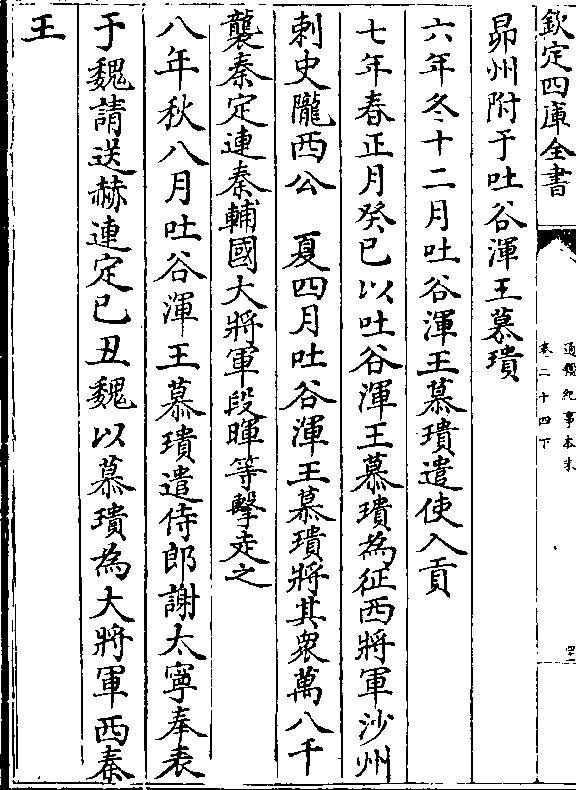 欽定四庫全書
通鑑紀事本末
卷二十四下
昴州附于吐谷渾王慕璝
六年冬十二月吐谷渾王慕璝遣使入貢
七年春正月癸巳以吐谷渾王慕璝為征西將軍沙州
刺史隴西公 夏四月吐谷渾王慕璝將其衆萬八千
襲秦定連秦輔國大將軍段暉等擊走之
八年秋八月吐谷渾王慕璝遣侍郎謝太寧奉表
于魏請送赫連定己丑魏以慕璝為大將軍西秦
王